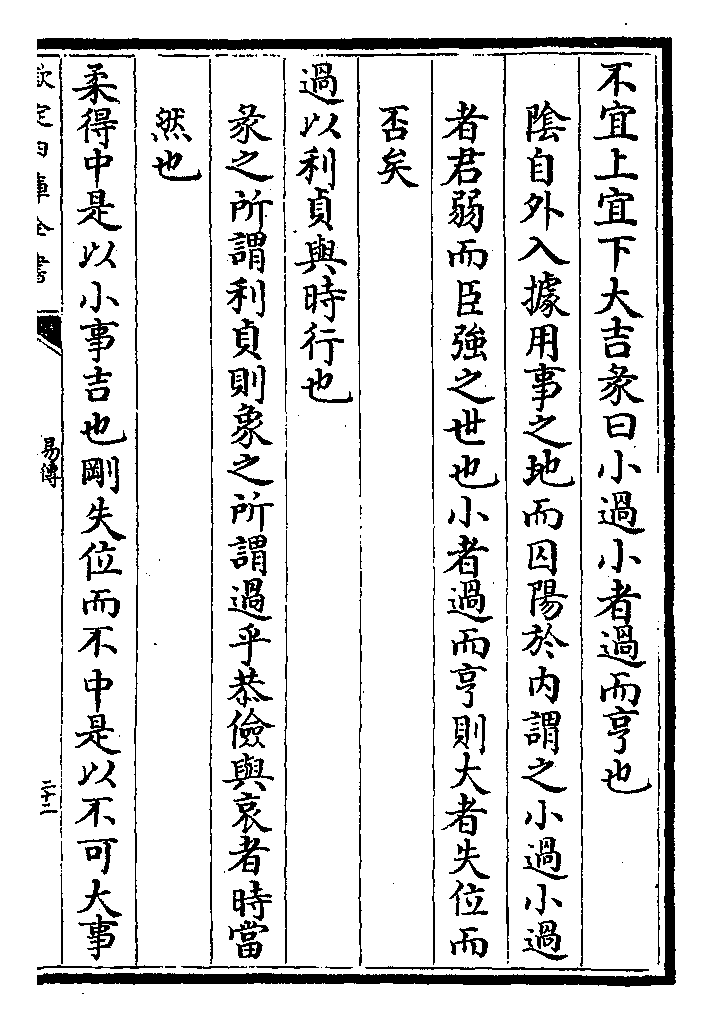 不宜上宜下大吉彖曰小過小者過而亨也
陰自外入據用事之地而囚陽於内謂之小過小過
者君弱而臣強之世也小者過而亨則大者失位而
否矣
過以利貞與時行也
彖之所謂利貞則象之所謂過乎恭儉與哀者時當
然也
柔得中是以小事吉也剛失位而不中是以不可大事
欽定四庫全書
易傳
二十二